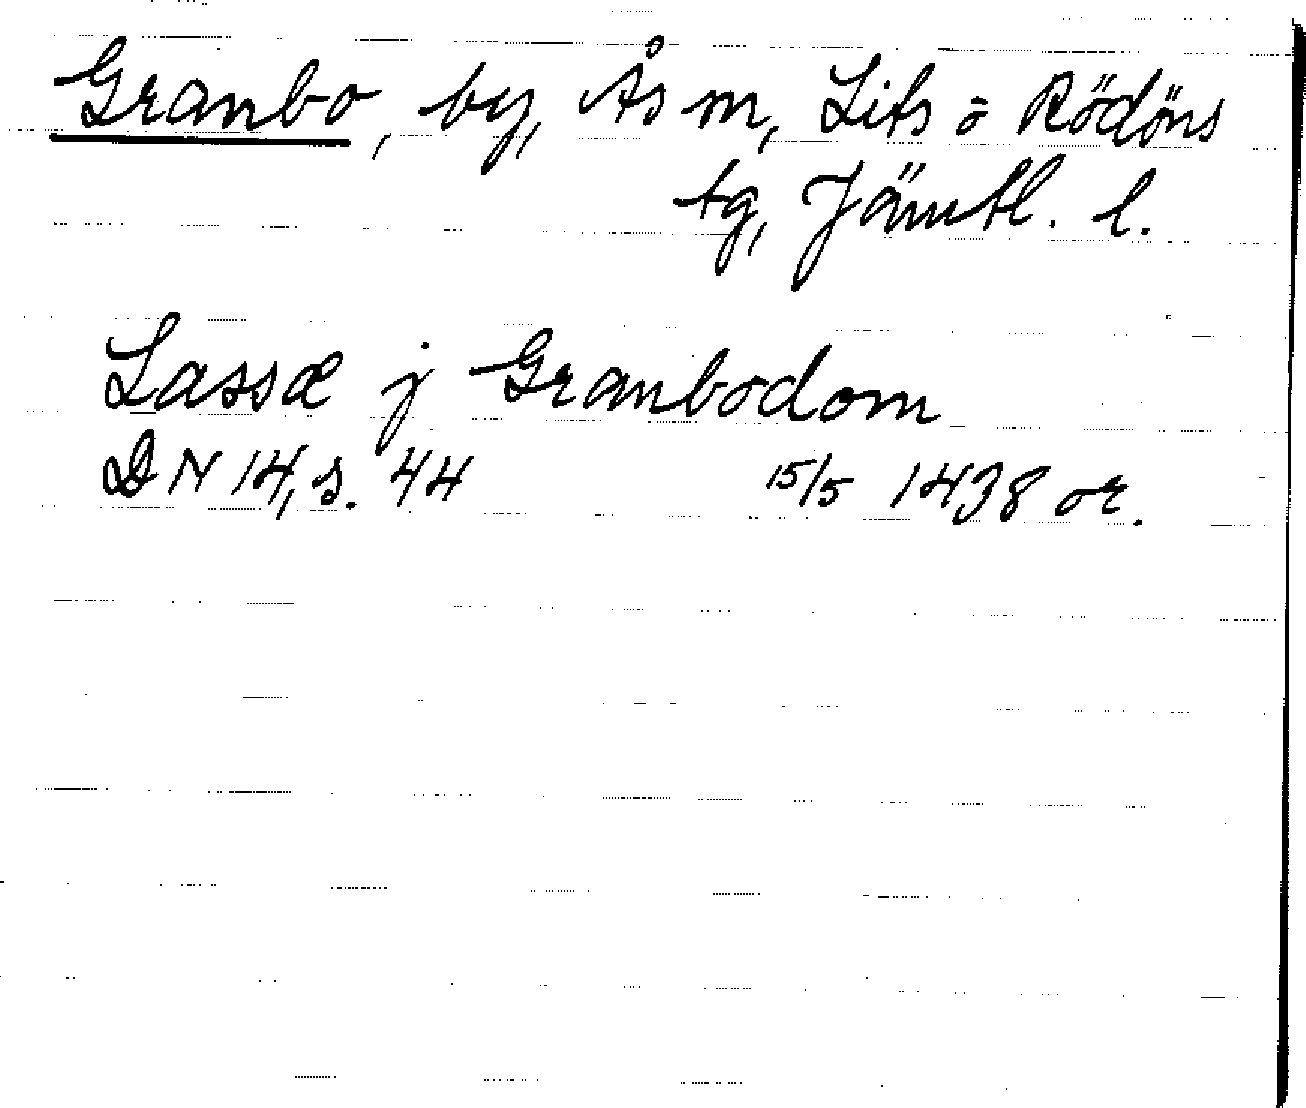 Granbo, by, Ås m, Lits o Rödöns
tg, Jämtl. l.
Lassæ j Granbodom
DN 14, s. 44 15/5 1438 or.